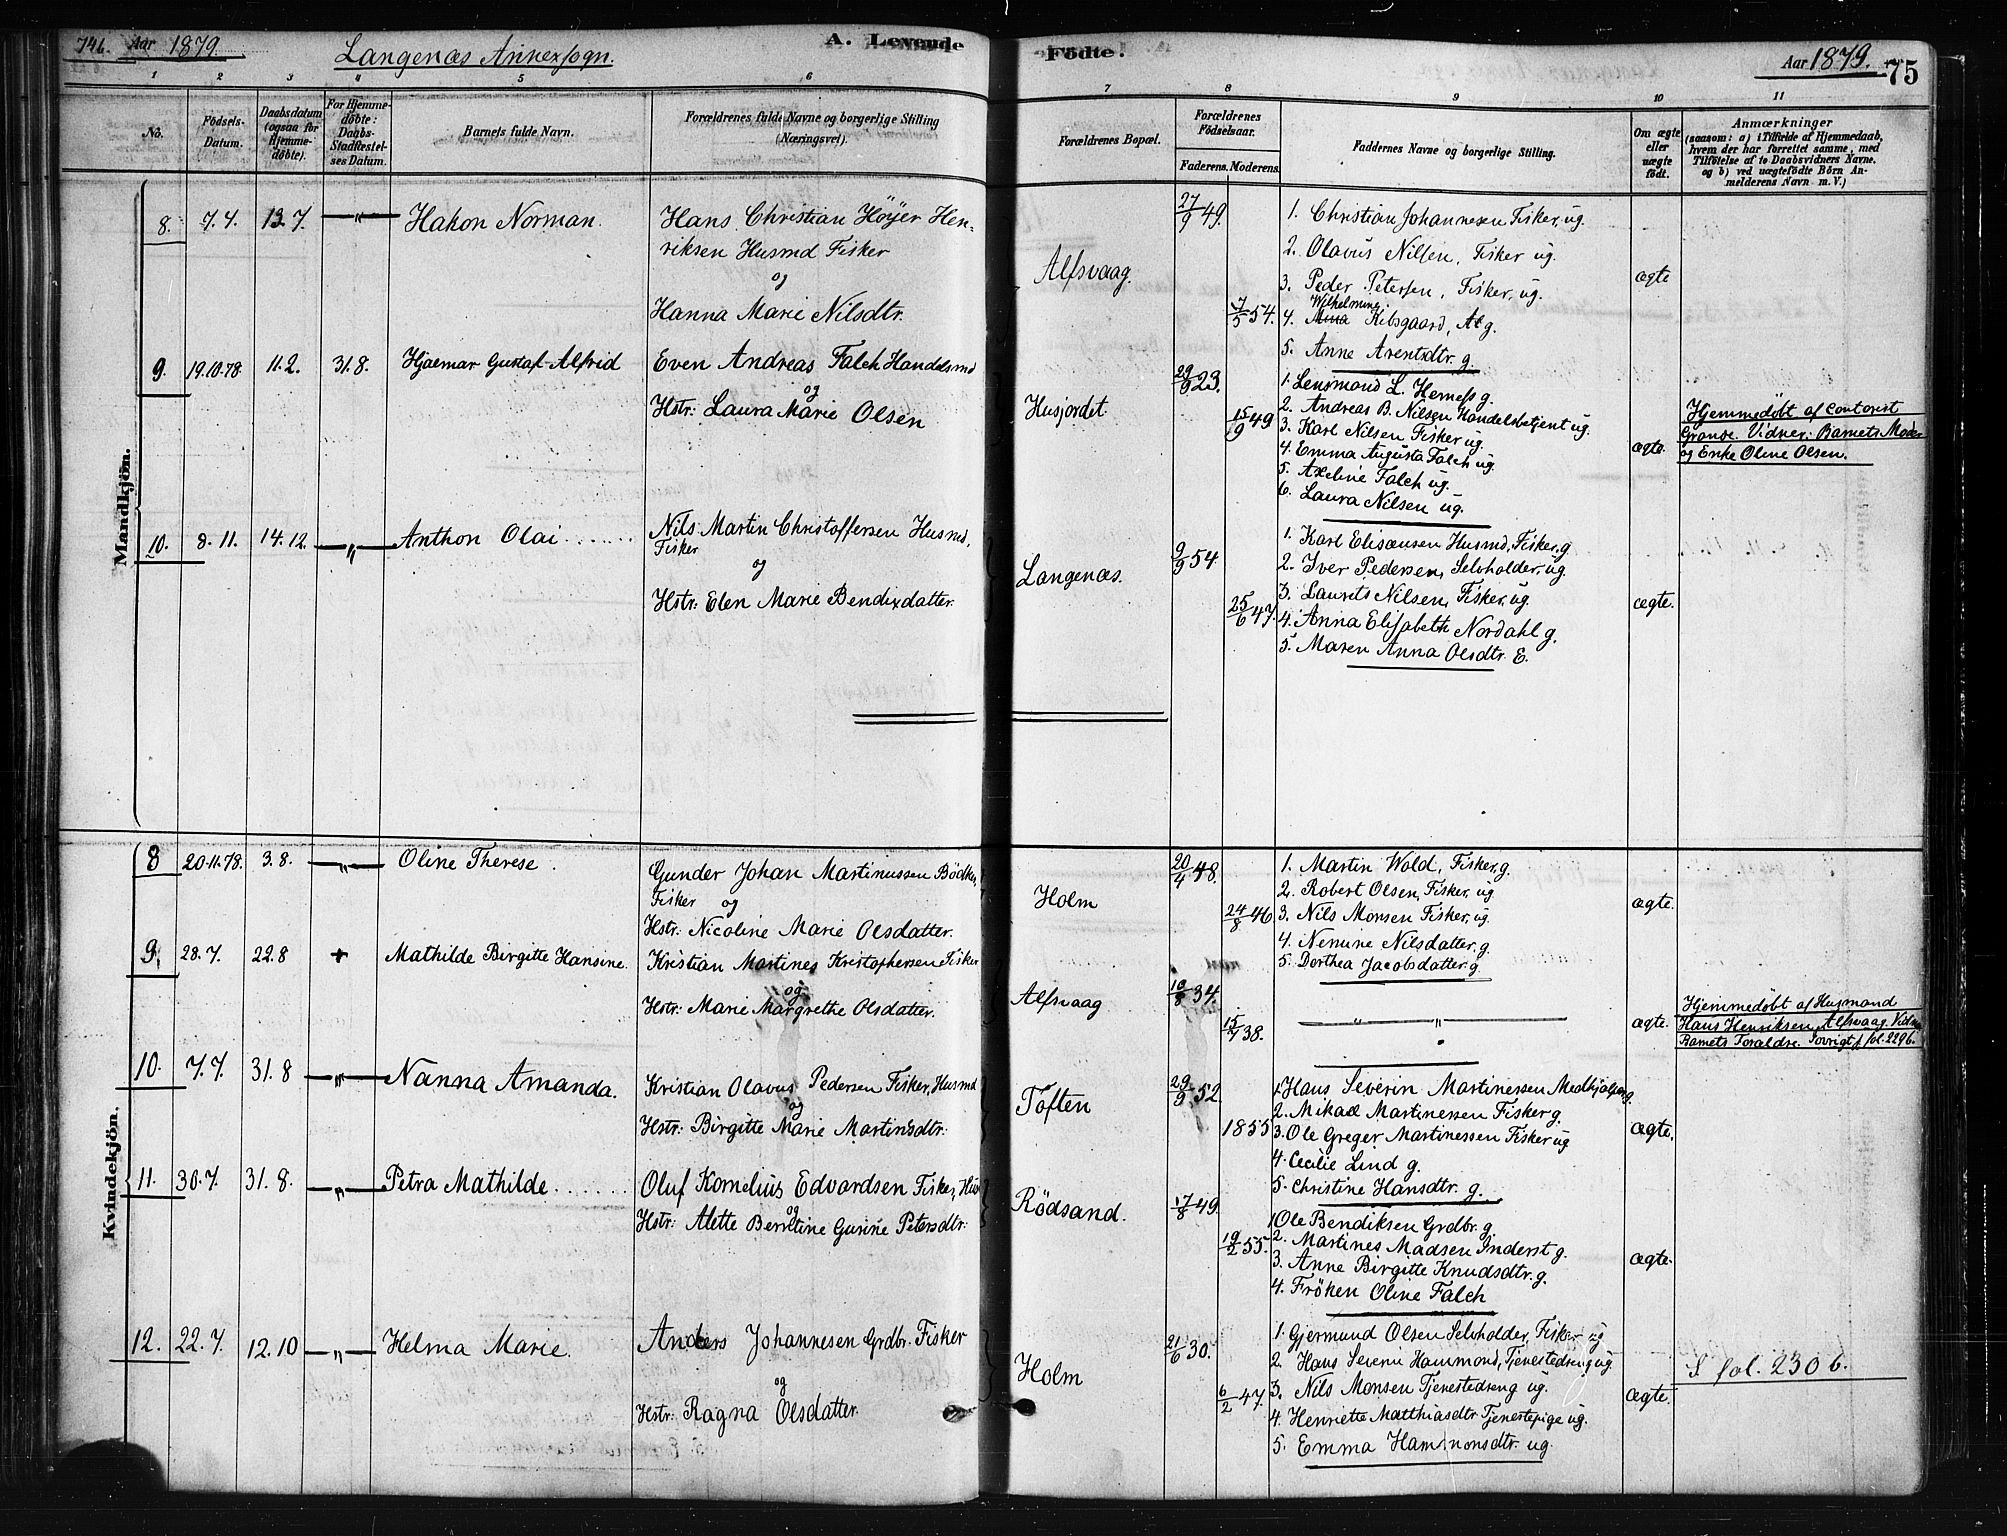 74b. Aar 1879.
Langenæs Annexsogn.
A. Levende
Födte.
Aar 1879.
75
1 2 3 " 5 6
7 8 9 10 11
No.
Födsels-Datum.
Daabsdatum (ogsaa for Hjemme-döbte).
For Hjemme-döbte: Daabs-Stadfæstel-ses Datum.
Barnets fulde Navn.
Forældrenes fulde Navne og borgerlige Stilling (Næringsvei).
Forældrenes Bopæl.
Forældrenes Födselsaar.
Faderens. Moderens.
Faddernes Navne og borgerlige Stilling.
Om ægte eller uægte födt.
Anmærkninger
(saasom: a) i Tilfælde af Hjemmedaab,
hvem der har forrettet samme, med
Tilföielse af to Daabsvidners Navne.
og b) ved uægtefödte Börn An-
melderens Navn m. V.)
Mandkjön.
8. 7.4. 13.7. — " — Hakon Norman.
Hans Christian Höyer Hen-
riksen Husmd Fisker
og
Hanna Marie Nilsdtr.
Alfsvaag.
27/9 49.
7/5 54.
1. Christian Johannesen Fisker, ug.
2. Olavus Nilsen, Fisker ug.
3. Peder Petersen, Fisker, ug.
Wilhelmine
4. Mina Kibsgaard, g.
5. Anne Arentsdtr. g.
ægte
9. 19.10.78. 11.2. 31.8. Hjaemar Gustaf Alfrid
Even Andreas Falch Handelsmd
og
Hstr: Laura Marie Olsen
Husjordet.
29/9 23.
15/9 49
1. Lensmand L. Hemess g.
2. Andreas B. Nilsen Handelsbetjent ug.
3. Karl Nilsen Fisker ug.
4. Emma Augusta Falch ug.
5. Axeline Falch ug.
6. Laura Nilsen ug.
ægte.
Hjemmedøbt af Contorist
Gronse. Vidner: Barnets Moder
og Enke Oline Olsen.
10. 8.11. 14.12. — " — Anthon Olai
Nils Martin Christoffersen Husmd.
Fisker
og
Hstr: Elen Marie Bendixdatter.
Langenæs.
9/9 54.
25/6 47.
1. Karl Elisæusen Husmd, Fisker, g
2. Iver Pedersen, Selvholder, ug.
3. Laurits Nilsen, Fisker, ug.
4. Anna Elisabeth Nordahl g.
5. Maren Anna Olsdtr. E.
ægte.
Kvindekjön.
8 20.11.78. 3.8. — " — Oline Therese.
Gunder Johan Martinussen Bödker,
Fisker og
Hstr: Nicoline Marie Olsdatter.
Holm
20/4 48.
24/8 46
1. Martin Wold, Fisker, g.
2. Robert Olsen, Fisker, ug
3. Nils Monsen Fisker, ug.
4. Nenine Nilsdatter, g.
5. Dorthea Jacobsdatter. g.
ægte.
9. 28.7. 22.8 + Mathilde Birgitte Hansine.
Kristian Martines Kristophersen Fisker
og
Hstr: Marie Margrethe Olsdatter.
Alfsvaag
10/8 34.
15/7 38.
— " — " —
ægte.
Hjemmedøbt af Husmand
Hans Henriksen, Alfsvaag. Vidner
Barnets Foraldre. Forrigt fol. 229b.
10. 7.7. 31.8 — " — Nanna Amanda.
Kristian Olavus Pedersen Fisker, Husmd
og
Hstr: Birgitte Marie Martinsdtr:
Toften
29/9 52.
1855
1. Hans Severin Martinessen Medhjælper g.
2. Mikael Martinessen Fisker g.
3. Ole Greger Martinessen Fisker ug
4. Cecilie Lind g.
5. Christine Hansdtr. g.
ægte.
11. 30.7. 31.8. — " — Petra Mathilde
Oluf Kornelius Edvardsen Fisker, Hus
og
Hstr: Alette Berntine Gurine Petersdtr.
Rödsand.
17/8 49.
19/2 55.
1 Ole Bendiksen Grdbr. g.
2. Martines Madsen Inderst g.
3. Anne Birgitte Knudsdtr. g.
4. Fröken Oline Falch
ægte.
12. 22.7. 12.10 — " — Helma Marie.
Anders Johannesen Grdbr. Fisker
og
Hstr: Ragna Olsdatter.
Holm
21/6 30.
6/2 47.
1. Gjermund Olsen Selvholder, Fisker ug
2. Hans Serenie Hammond, Tjenestedreng ug
3. Nils Monsen Tjenestedreng ug.
4. Henriette Matthiasdtr Tjenestepige ug.
5. Emma Hammonsdtr. ug.
ægte.
S fol. 230 b.